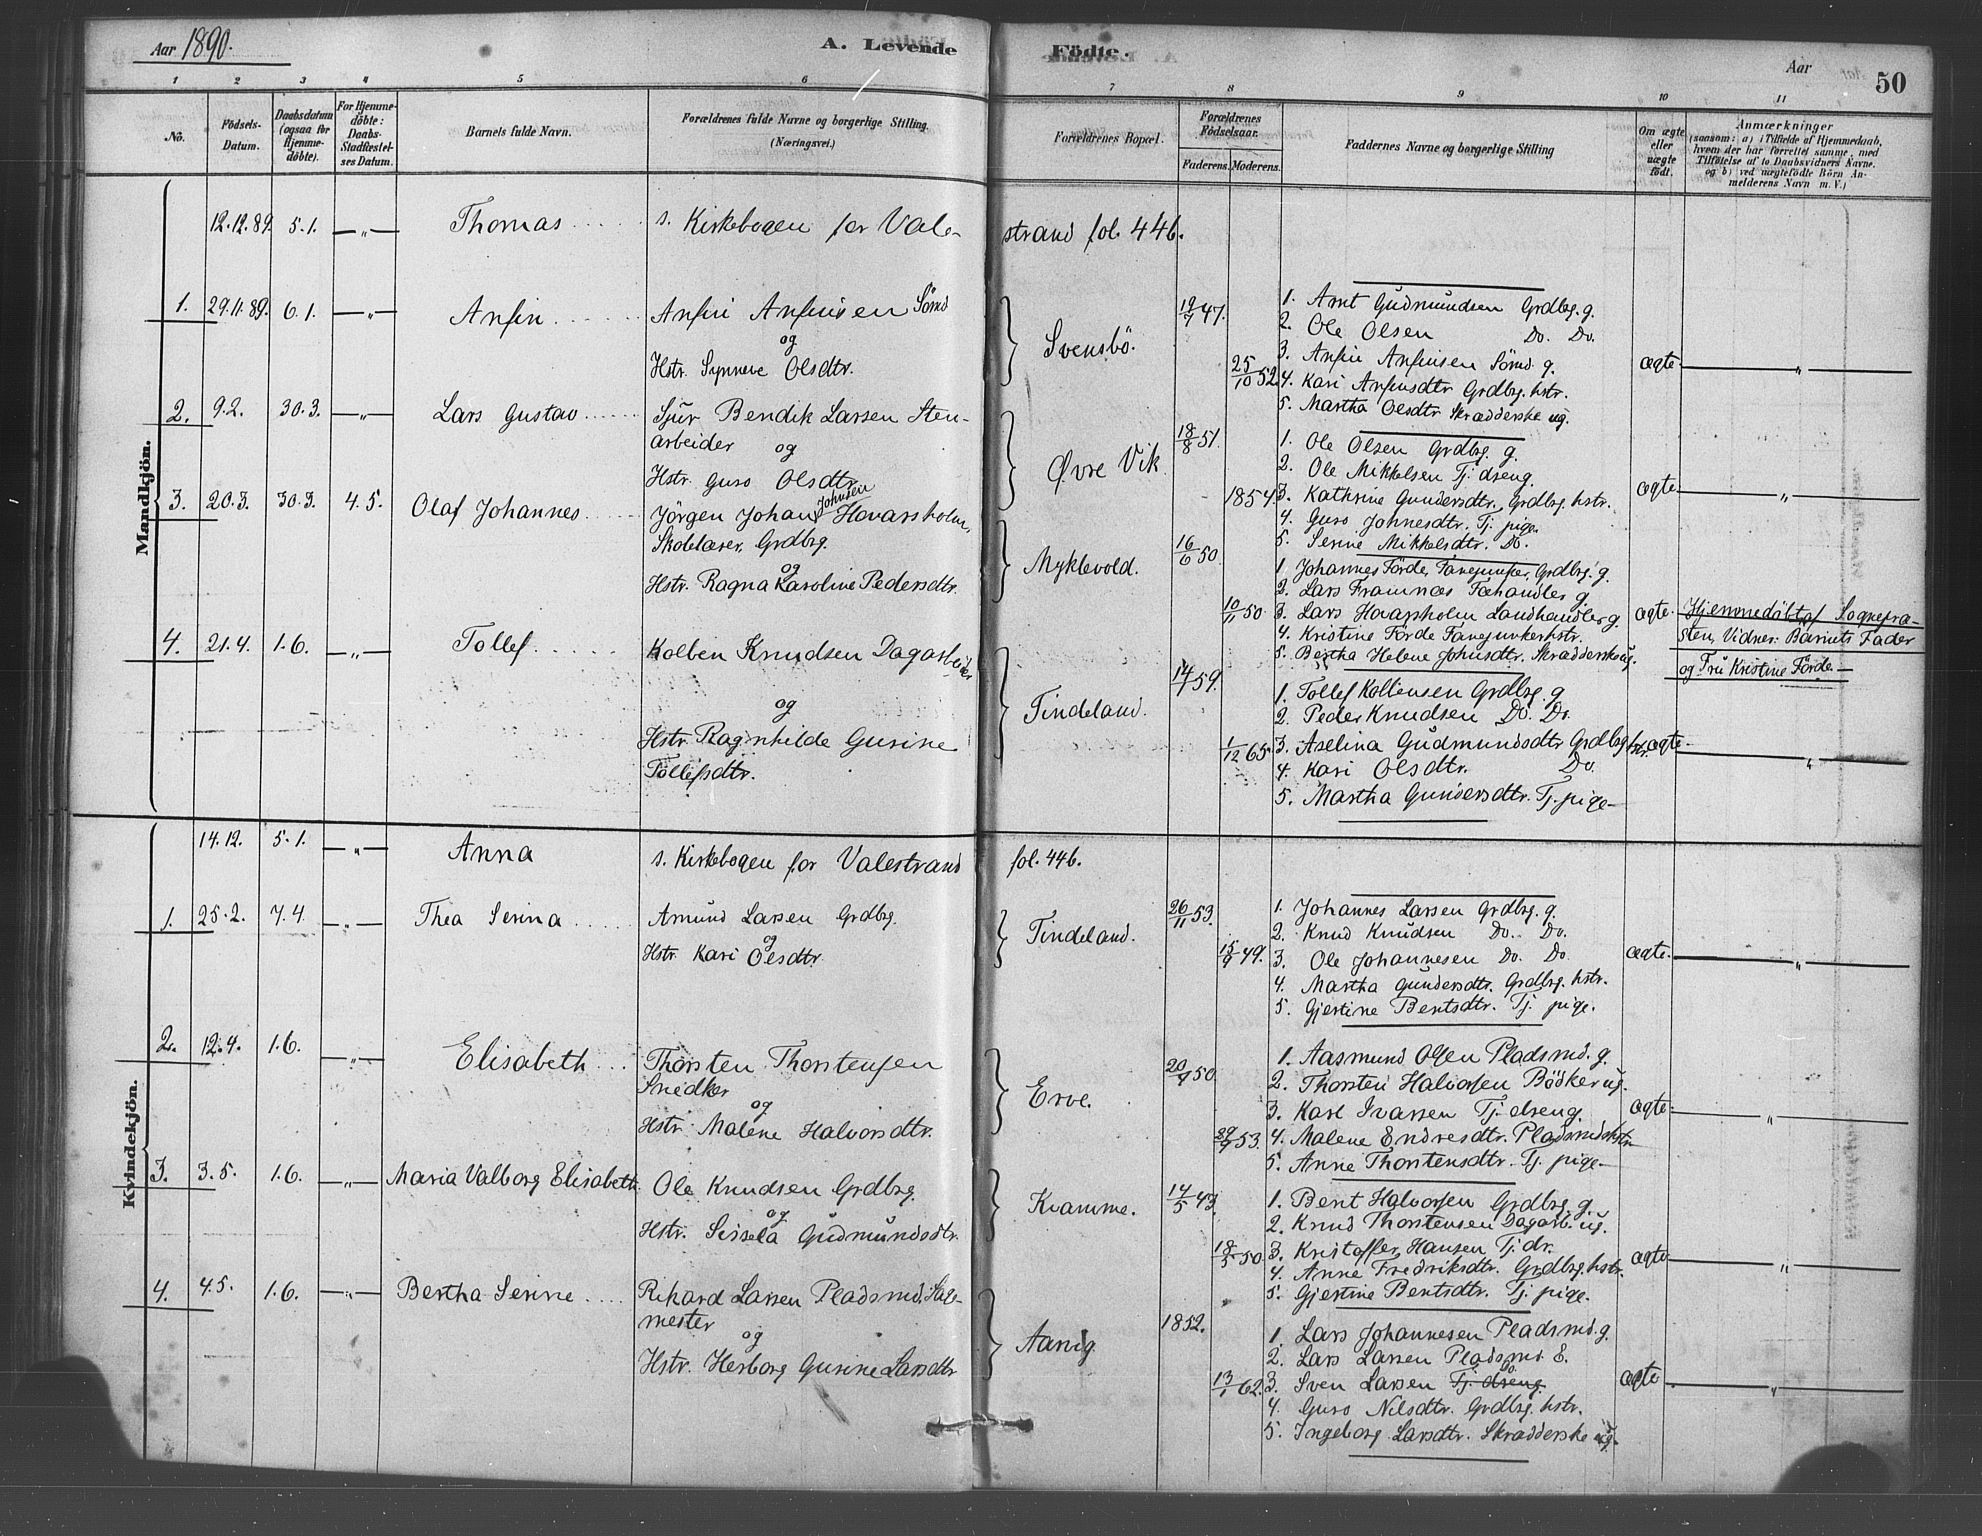 Aar 1890.
A. Levende Födte.
Aar
50
1 2 3 4 5 6 7 8 9 10 11
No.
Födsels-Datum.
Daabsdatum (ogsaa for Hjemme-döbte).
For Hjemme-döbte: Daabs-Stadfæstel-ses Datum.
Barnets fulde Navn.
Forældrenes fulde Navne og borgerlige Stilling. (Næringsvei.)
Forældrenes Bopæl.
Forældrenes Födselsaar.
Faderens. Moderens.
Faddernes Navne og borgerlige Stilling
Om ægte eller uægte födt.
Anmærkninger
(saasom: a) i Tilfælde af Hjemmedaab, hvem der har forrettet samme, med Tilföielse af to Daabsvidners Navne. og b) ved uægtefödte Börn An-melderens Navn m. V.)
Mandkjön.
12.12.89. 5.1. — „ — Thomas s. Kirkebogen for Vale-strand fol. 446.
1. 29.11.89. 6.1. — „ — Anfin
Anfin Anfinsen Sömd
og
Hstr. Synneve Olsdtr.
Svensbö.
19/7 47.
25/10 52
1. Arnt Gudmundsen Grdbrg. g.
2. Ole Olsen Do. Do.
3. Anfin Anfinsen Sömd. g.
4. Kari Anfinsdtr Grdbrg. hstr.
5. Martha Olsdtr Skrædderske ug.
ægte — „ —
2. 9.2. 30.3. — „ — Lars Gustav
Sjur Bendik Larsen Sten-
arbeider og
Hstr. Guro Olsdtr
Øvre Vik
18/8 51.
1854
1. Ole Olsen Grdbrg. g.
2. Ole Mikkelsen Tj. dreng.
3. Kathrine Gundersdtr. Grdbrg. hstr.
4. Guro Johnesdtr. Tj. pige.
5. Serine Mikkelsdtr. Do.
ægte — „ —
3. 20.3. 30.3. 4.5. Olaf Johannes
Jörgen Johan Johnsen Hovarsholm,
Skolelærer, Grdbrg.
og
Hstr. Ragna Karoline Pedersdtr.
Myklevold.
16/6 50.
10/11 50
1. Johannes Förde, Fanejunker, Grdbrg. g.
2. Lars Framnæs Fæhandler g.
3. Lars Hovarsholm Landhandler g.
4. Kristine Förde Fanejunkerhstr.
5. Bertha Helene Johnsdtr. Skrædderske ug.
ægte.
Hjemmedöbt af Sognepræ-
sten, Vidner: Barnets Fader
og Fru Kristine Förde —
4. 21.4. 1.6. — „ — Tollef
Kolben Knudsen Dagarbeider
og
Hstr. Ragnhilde Gurine
Tollefsdtr.
Tindeland.
14/1 59.
1/12 65
1. Tollef Kolbensen Grdbrg. g.
2. Peder Knudsen Do. Do.
3. Aselina Gudmundsdtr Grdbrg hstr.
4. Kari Olsdtr. Do.
5. Martha Gundersdtr. Tj. pige —
ægte — „ —
Kvindekjön.
14.12. 5.1. — „ — Anna s. Kirkebogen for Valestrand fol. 446.
1. 25.2. 7.4. — „ — Thea Serina
Amund Larsen Grdbrg.
og
Hstr. Kari Olsdtr.
Tindeland.
26/11 53.
15/9 49.
1. Johannes Larsen Grdbrg. g.
2. Knud Knudsen Do. Do.
3. Ole Johannesen Do. Do.
4. Martha Gundersdtr. Grdbrg. hstr.
5. Gjertine Bentsdtr. Tj. pige.
ægte. — „ —
2. 12.4. 1.6. — „ — Elisabeth
Thorsten Thorstensen
Snedker
og
Hstr. Malene Halvorsdtr.
Erve.
20/9 50
53.
1. Aasmund Olsen Pladsmd. g.
2. Thorsten Halvorsen Bödker ug.
3. Karl Ivarsen Tj. dreng.
4. Malene Endresdtr. Pladsmdshstr
5. Anne Thorstensdtr. Tj. pige —
ægte — „ —
3. 3.5. 1.6. — „ — Maria Valborg Elisabeth
Ole Knudsen Grdbrg.
og
Hstr. Sissela Gudmundsdtr.
Kvamme.
14/5 43.
18/5 50.
1. Bent Halvorsen Grdbrg. g.
2. Knud Thorstensen Dagarb. ug.
3. Kristoffer Hansen Tj. dr.
4. Anne Fredriksdtr. Grdbrg. hstr.
5. Gjertine Bentsdtr. Tj. pige.
ægte — „ —
4. 4.5. 1.6. — „ — Bertha Serine
Rikard Larsen Pladsmd. Sage-
mester
og
Hstr. Herborg Gurine Larsdtr
Aarvig
1852.
13/1 62.
1. Lars Johannesen Pladsmd. g.
2. Lars Larsen Pladsmd. E.
3. Sven Larsen Tj. dreng. Do
4. Guro Nilsdtr. Grdbrg. hstr.
5. Ingeborg Larsdtr. Skrædderske ug.
ægte — „ —